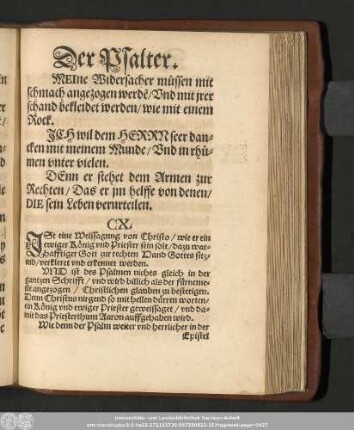 Der Psalter.
MEIne Widersacher müssen mit
schmach angezogen werdē/Vnd mit jrer
schand bekleidet werden/wie mit einem
Rock.
JCH wil dem HERRN seer dan-
cken mit meinem Munde/Vnd jn rhü-
men vnter vielen.
DEnn er stehet dem Armen zur
Rechten/Das er jm helffe von denen/
DIE sein Leben verurteilen.
CX.
JSt eine Weissagung von Christo/wie er ein
ewiger König vnd Priester sein solt/dazu war-
hafftiger Gott zur rechten Hand Gottes sitz-
end/verkleret vnd erkennet werden.
VND ist des Psalmen nichts gleich in der
gantzen Schrifft/vnd würd billich als der fürnemeste
angezogen/Christlichen glauben zu bestetigen.
Denn Christus nirgend so mit hellen dürren worten/
ein König vnd ewiger Priester geweissaget/vnd da-
mit das Priesterthum Aaron auffgehaben wird.
Wie denn der Psalm weiter vnd herrlicher in der
Epistel
Universitäts- und Landesbibliothek Sachsen-Anhalt